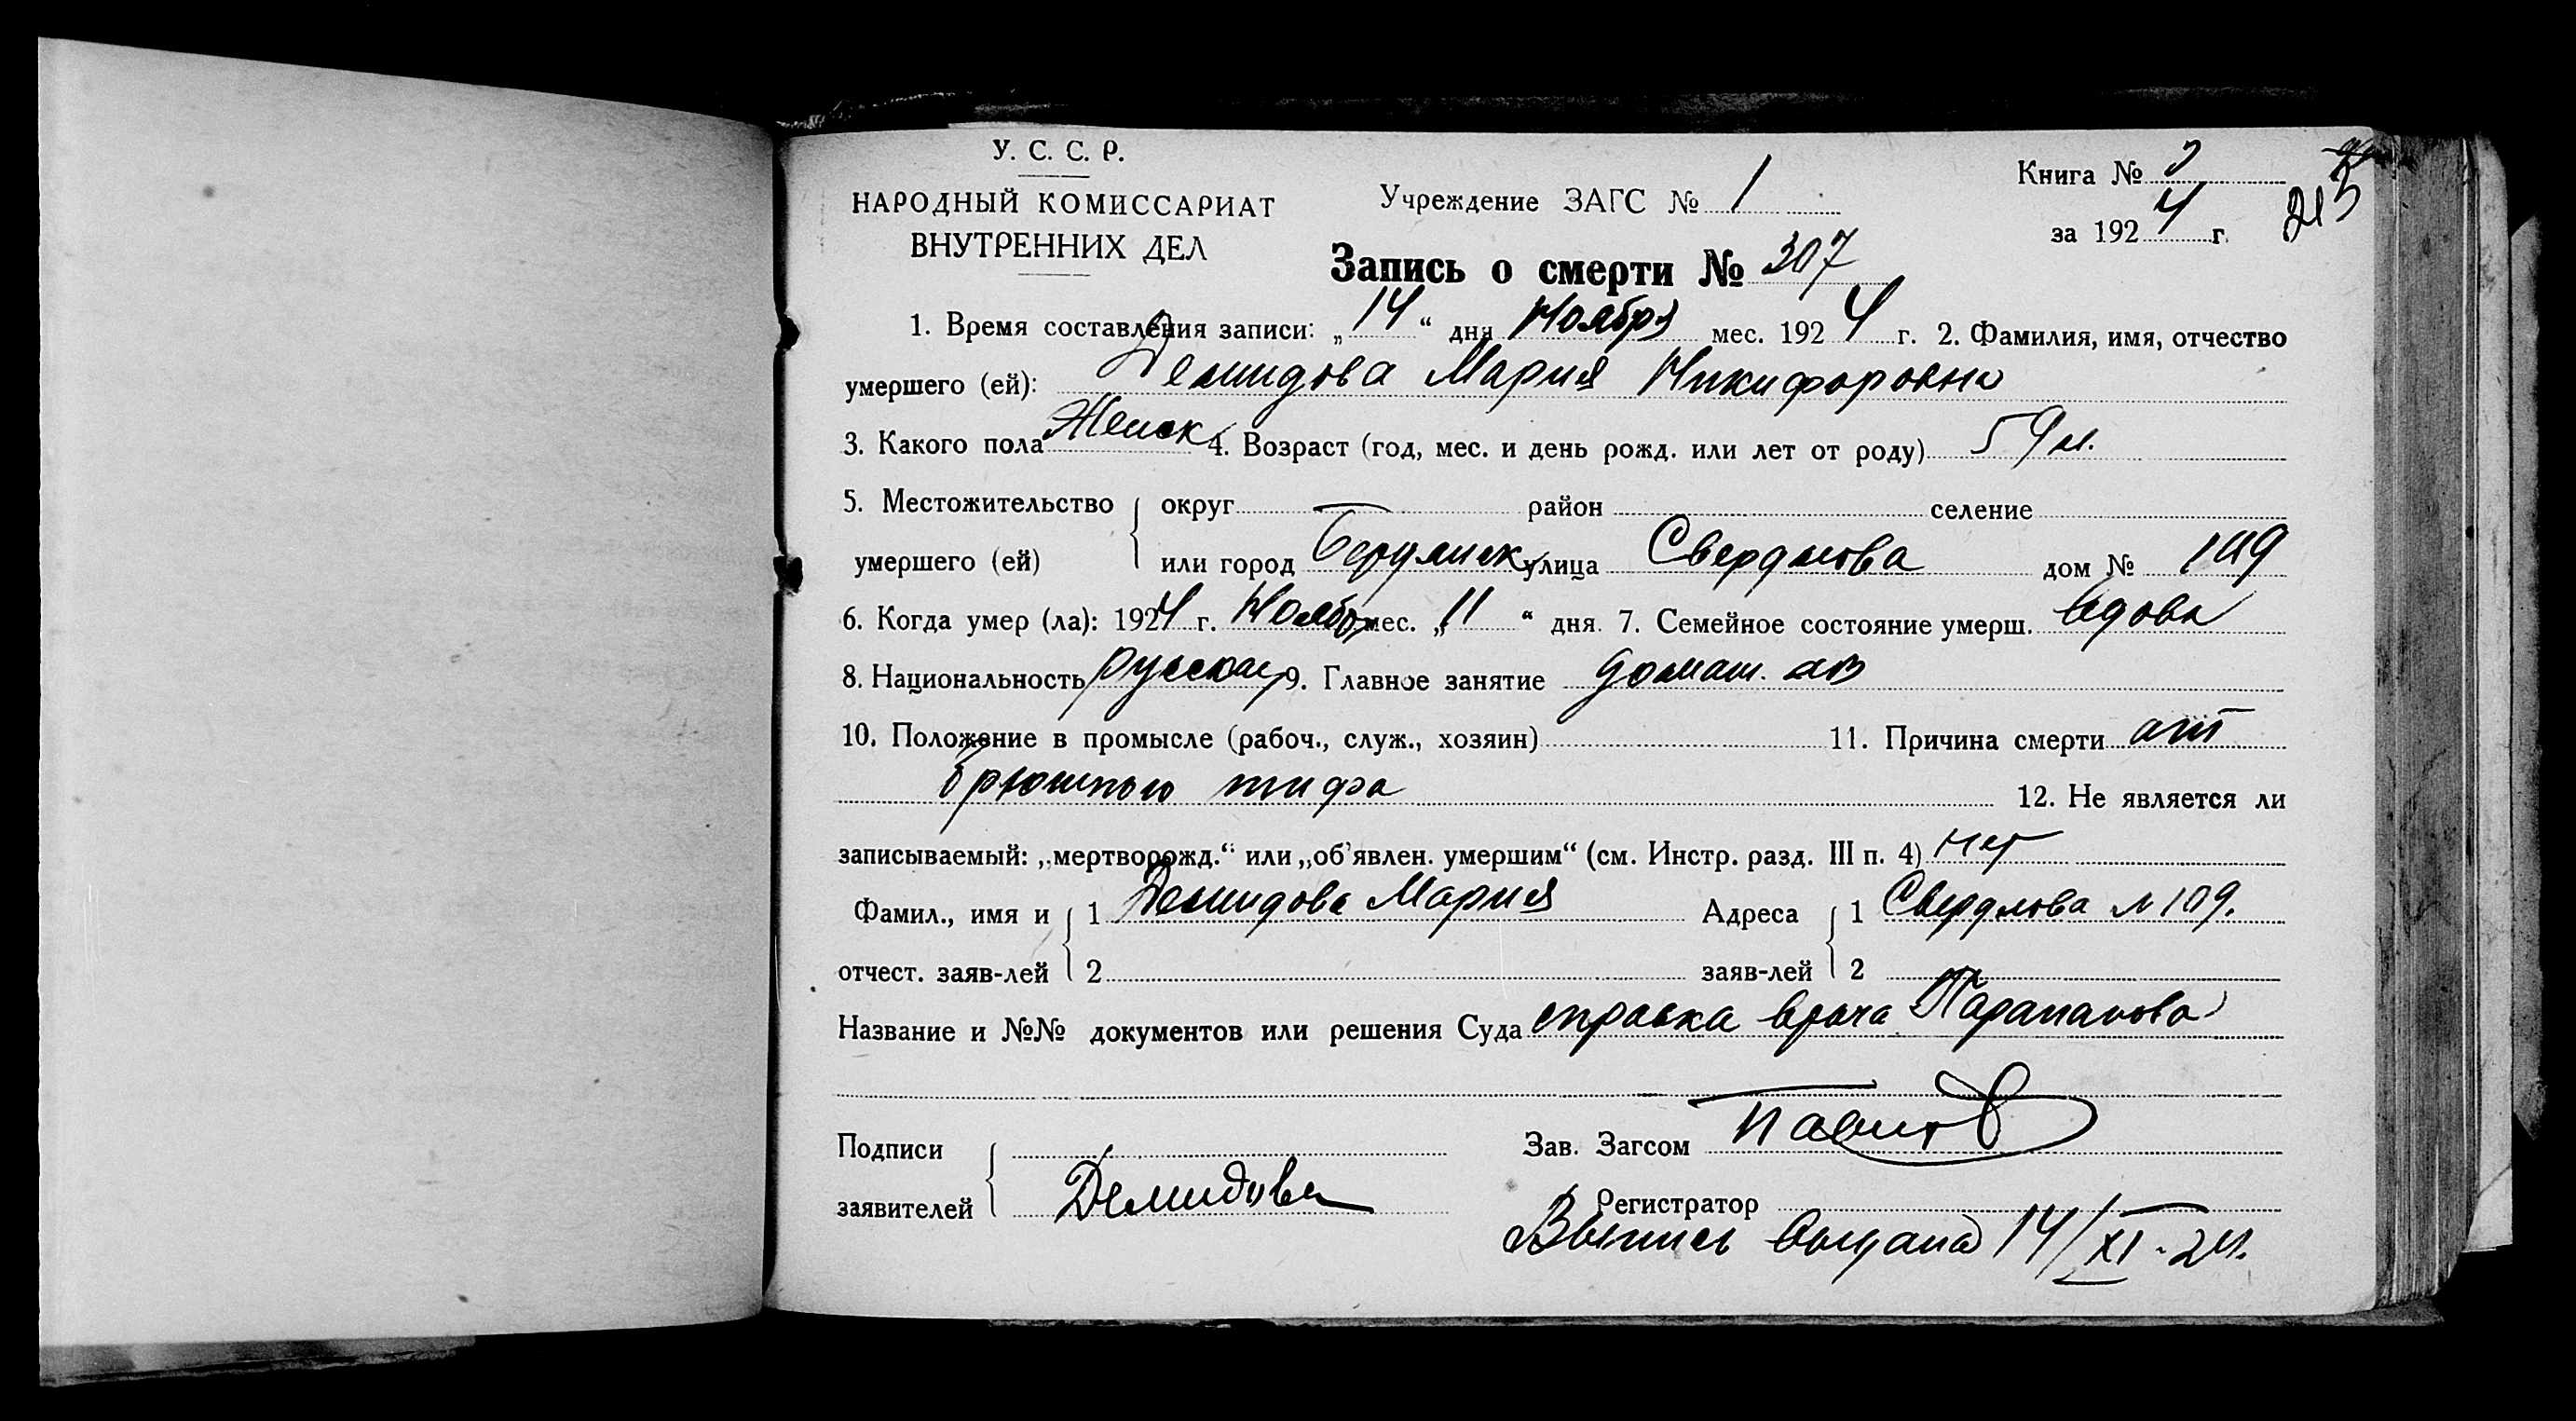 У. С. С. Р.
НАРОДНЫЙ КОМИССАРИАТ
ВНУТРЕННИХ ДЕЛ
Учреждение ЗАГС № 1
Книга № 3
за 1924 г.
213
Запись о смерти № 307
1. Время составления записи: „14“ дня Ноября мес. 1924 г. 2. Фамилия, имя, отчество
умершего (ей): Демидова Мария Никифоровна
3. Какого пола Женск 4. Возраст (год, мес. и день рожд. или лет от роду) 59 л.
5. Местожительство округ район селение
умершего (ей) или город улица Свердлова дом № 109
6. Когда умер (ла): 1924 г. Ноябр мес. „11“ дня. 7. Семейное состояние умерш. вдова
8. Национальность русская 9. Главное занятие домаш.
10. Положение в промысле (рабоч., служ., хозяин) 11. Причина смерти от
брюшного тифа 12. Не является ли
записываемый: „мертворожд.“ или „об'явлен. умершим“ (см. Инстр. разд. III п. 4) нет
Фамил., имя и 1 Демидова Мария Адреса 1 Свердлова № 109.
отчест. заяв-лей 2 заяв-лей 2
Название и №№ документов или решения Суда справка врача
Подписи Зав. Загсом
заявителей Демидова Регистратор
Выпись выдана 14/XI-24.